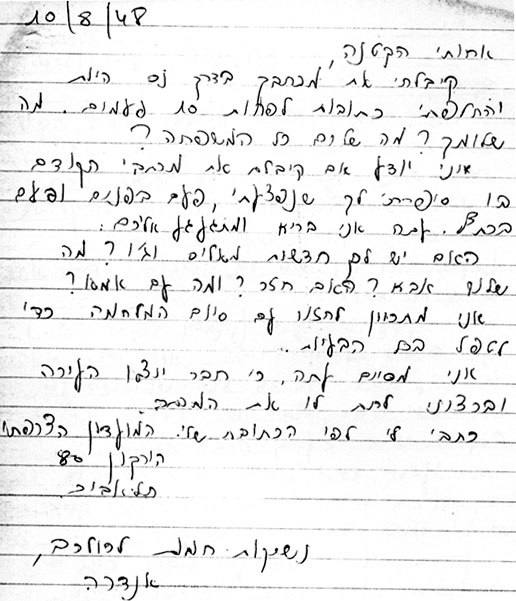 10/8/48
אחותי הקטנה,
קיבלתי את מכתבך בדרך נס היות
והחלפתי כתובות לפחות 10 פעמים. מה
שלומך? מה שלום כל המשפחה?
אינני יודע אם קיבלת את מכתבי הקודם
בו סיפרתי לך שנפצעתי, פעם בפנים ופעם
עתה אני בריא ומתגעגע אליכם.
האם יש לכן חדשות מאליס וג'ו? מה
שלום אבא? האם חזר? ומה עם אמא?
אני מתכוון לחזור עם סיום המלחמה כדי
לטפל בכל הבעיות.
אני מסיים עתה, כי חבר יוצא העירה
וברצוני לתת לו את המכתב.
כתבי לי לפי הכתובת שלי: המועדון הצרפתי
הירקון 80
תל-אביב.
נשיקות חמות לכולכם,
אנדרה